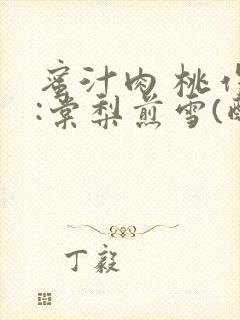 蜜汁肉桃作
:棠梨煎雪(
丁毅